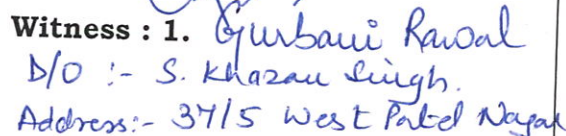 Witness : 1. Gurbani Rawal
D/O :- S. Khazan Singh.
Address:- 37/5 West Patel Nagar